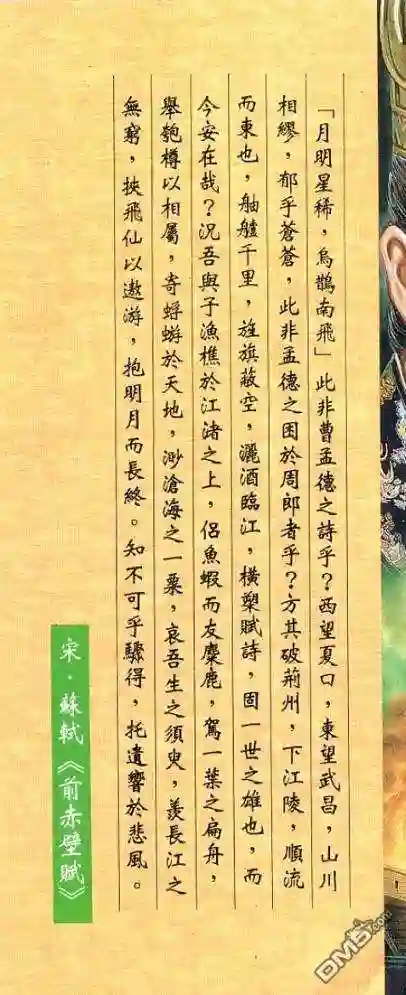 「月明星稀，烏鵲南飛」此非曹孟德之詩乎？西望夏口，東望武昌，山川
相繆，郁乎蒼蒼，此非孟德之困於周郎者乎？方其破荊州，下江陵，順流
而東也，舳艫千里，旌旗蔽空，灑酒臨江，橫槊賦詩，固一世之雄也，而
今安在哉？況吾與子漁樵於江渚之上，侶魚蝦而友麋鹿，駕一葉之扁舟，
舉匏樽以相屬，寄蜉蝣於天地，渺滄海之一粟，哀吾生之須臾，羨長江之
無窮，挾飛仙以遨游，抱明月而長終。知不可乎驟得，托遺響於悲風。
宋．蘇軾《前赤壁賦》
DM5.com